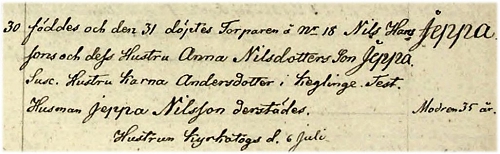 30 föddes och den 31 döptes Torparen å No 18 Nils Hans Jeppa
sons och dess Hustru Anna Nilsdotters Son Jeppa
Susc. Hustru Karna Andersdotter i Keglinge. Test.
Husman Jeppa Nilsson derstädes. Modren 35 år.
Hustrun Kyrkotogs d. 6 Juli